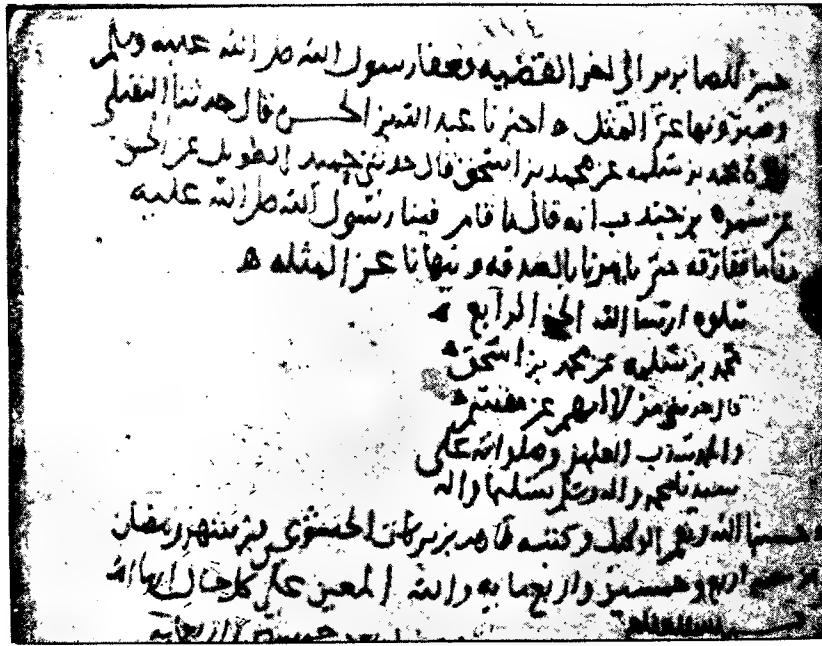 ١١٤
خير للصابرين الى اخر القصيه فعفا رسول الله صلى الله عليه وسلم
وصبر ونها عن المثل ه اخبرنا عبد الله بن الحسن قال حدثنا النفيلي
محمد بن سلمه عن محمد بن اسحق قال حدثني حميد الطويل عن الحسن
عن سمره بن جندب انه قال ما قام فينا رسول الله صلى الله عليه
مقاما ففارقه حتى يامرنا بالصدقه وينهانا عن المثله ه
يتلوه ان شا الله الجز الرابع
محمد بن سلمه عن محمد بن اسحق
قال حدثني من لا اتهم عن مقسم
والحمد لله رب العلمين وصلواته على
سيدنا محمد واله وسلم تسليما
وحسبنا الله ونعم الوكيل وكتبه طاهر بن بركات الخشوعي في شهر رمضان
من سنه اربع وخمسين واربع مايه والله المعين على كل حال